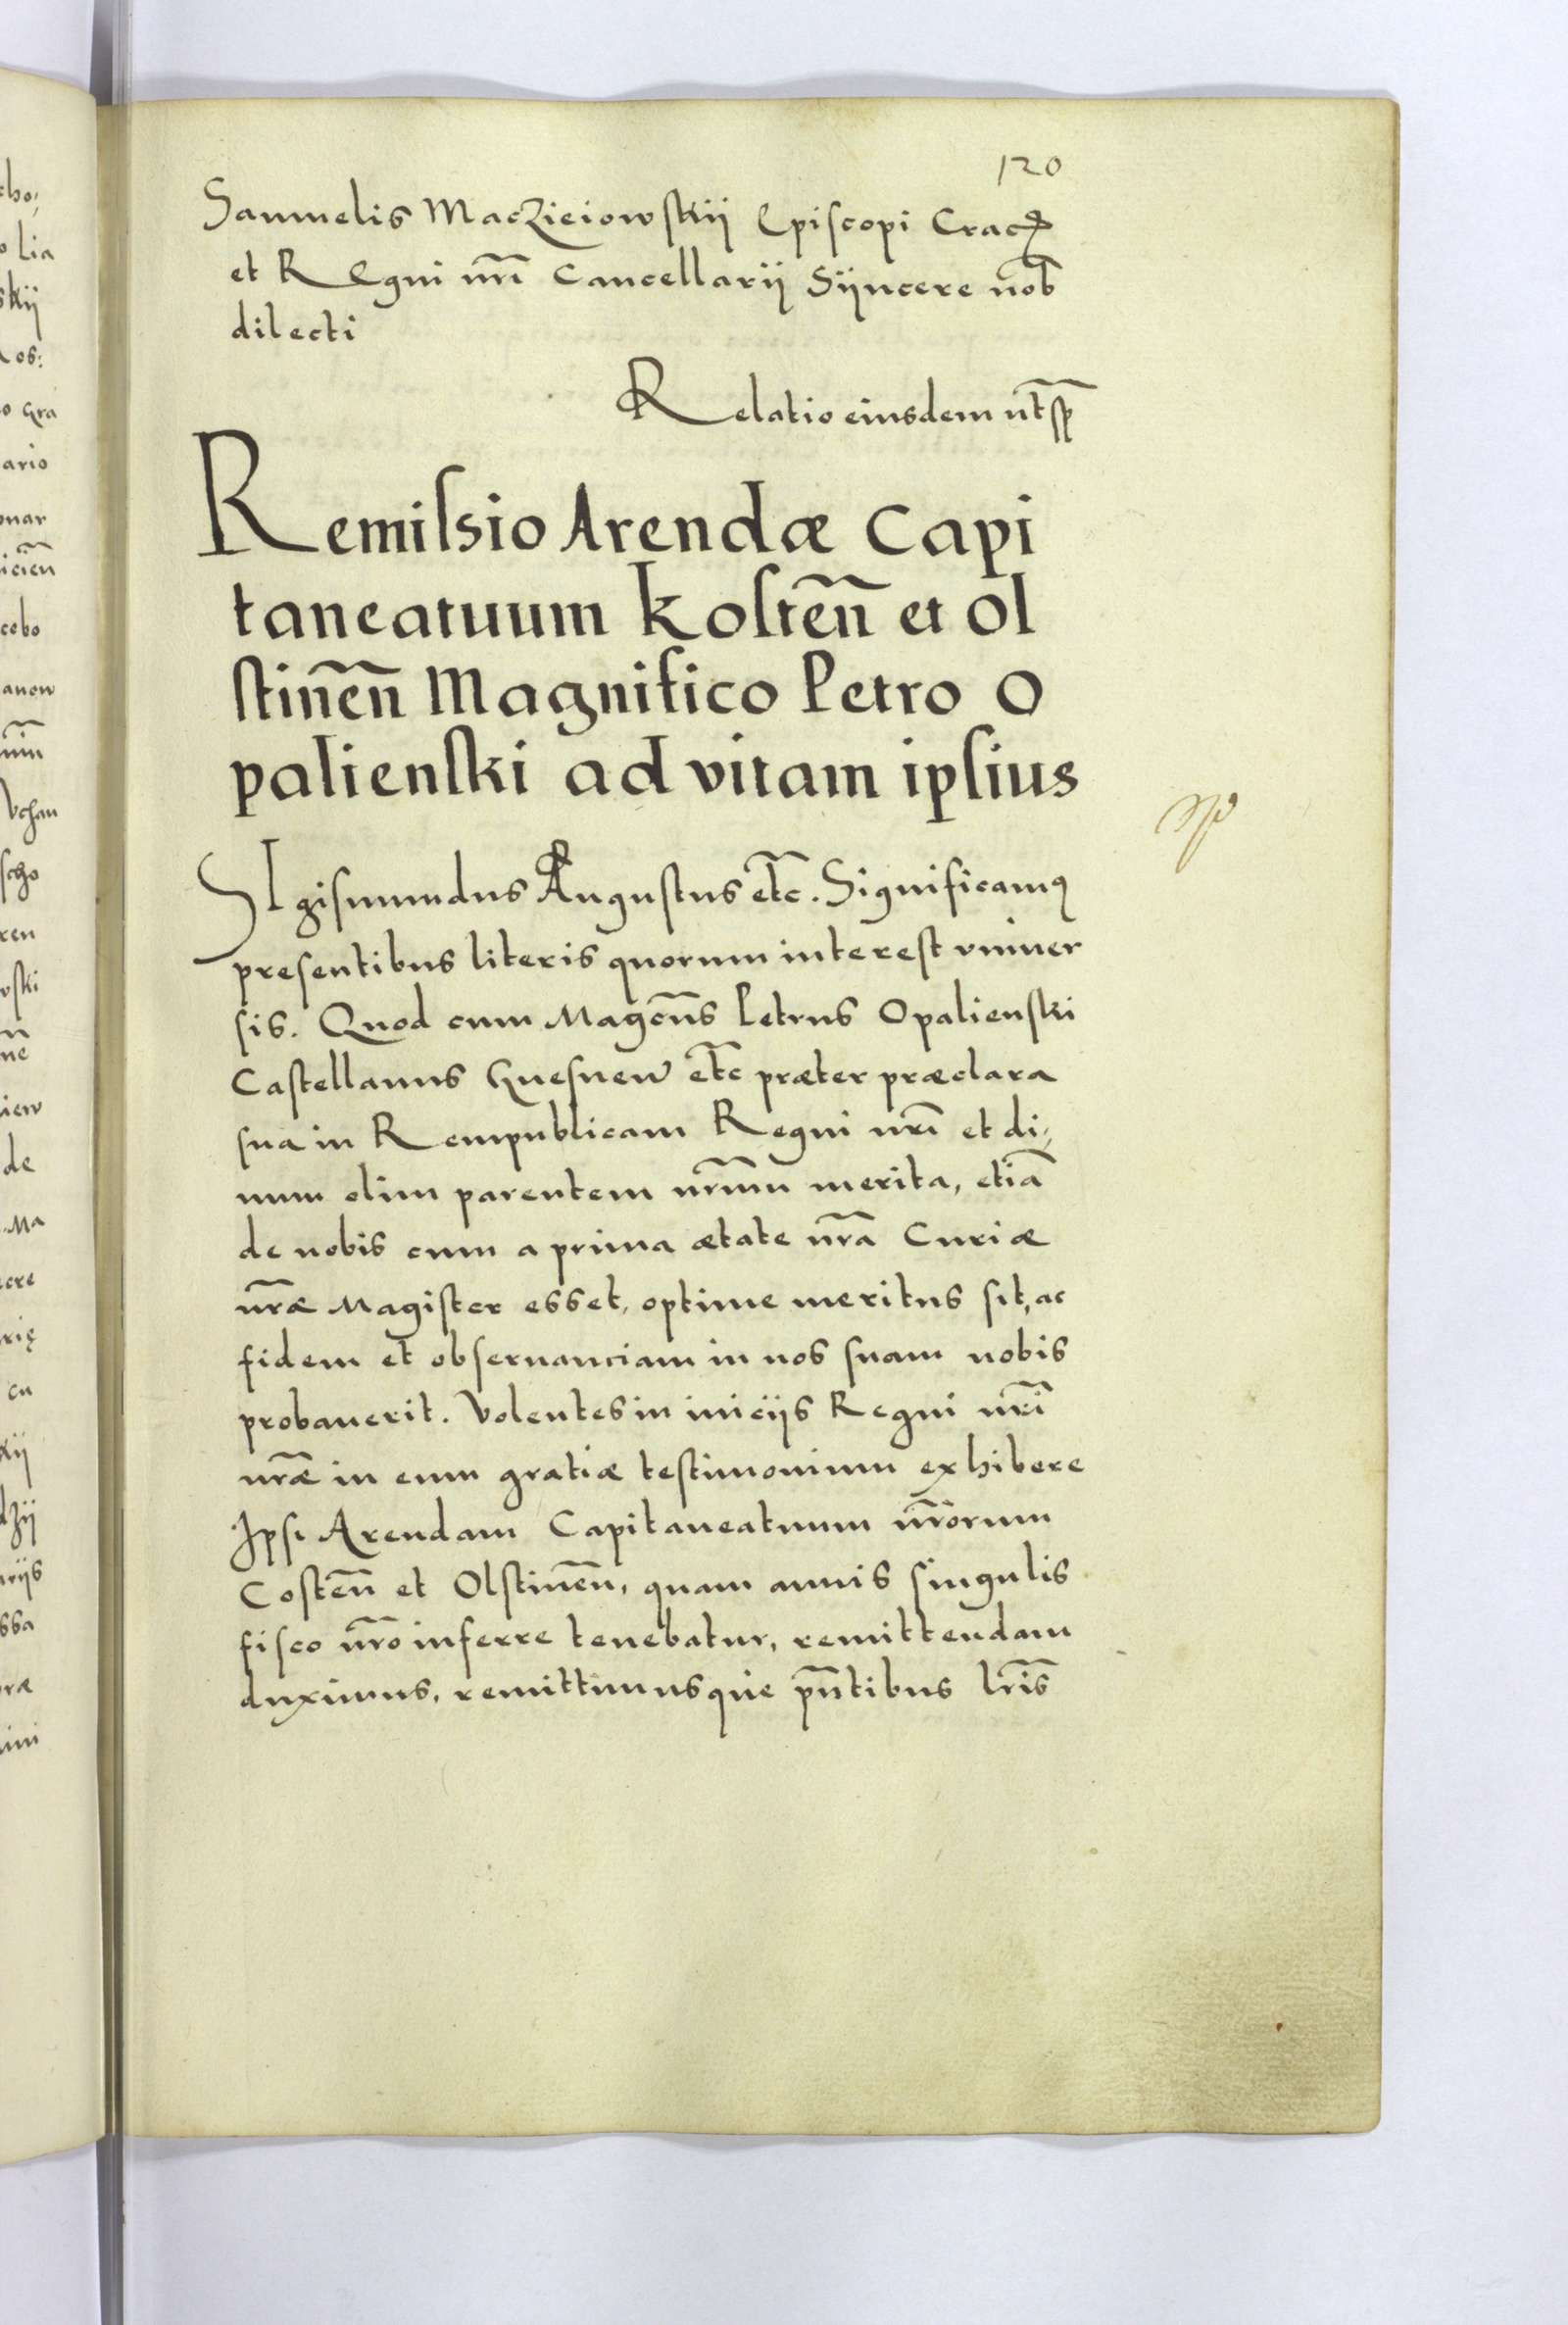 120
Samuelis Maczieiowskij Episcopi Crac
et REgni nrı̃ Cancellarij Sijncere nob̃
dilecti
Relatio eiusdem ut̃ sp̃
Remissio Arendæ Capi
taneatuum Kosteñ et Ol
stineñ Magnifico Petro O
palienski ad vitam ipsius
SIgismundus Augustus etc̃. Significamꝰ
presentibus literis quorum interest vniuer
sis. Quod cum Magcũs Petrus Opalienski
Castellanus Gnesnen̄ etc̃ præter præclara
sua in Rempublicam Regni nrı̃ et di,
uum olim parentem nrm̃ merita, etiã
de nobis cum a prima ætate nrã Curiæ
nræ̃ Magister esset, optime meritus sit, ac
fidem et obseruanciam in nos suam nobis
probauerit. Volentes in inicijs Regni nrı̃
nræ̃ in eum gratiæ testimonium exhibere
Ipsi Arendam Capitaneatuum nrõrum
Costeñ et Olstineñ, quam annis singulis
fisco nrõ inferre tenebatur, remittendam
duximus, remittimusque pñtibus lrı̃s